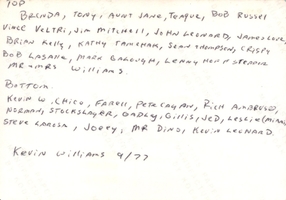 TOP
BRENDA, TONY, AUNT JANE, TEAQUE, BOB RUSSEL
VINCE VELTRI, JIM MITCHELL, JOHN LEONARD, JAMES LOVE,
BRIAN KELLY, KATHY FANCHER, SEAN THOMPSON, CRISPY
BOB LASALLE, MARK GALOUGH, LENNY
MR + MRS WILLIAMS.
BOTTOM
KEVIN W, CHICO, FARELL, PETE CAGAN, RICH AMBRUSO,
NORMAN, STOCKSLAGER, DADLY, GILLIS, JED, LESLIE
STEVE LAROSA, JOEY, MR DINO, KEVIN LEONARD.
KEVIN WILLIAMS 9/77